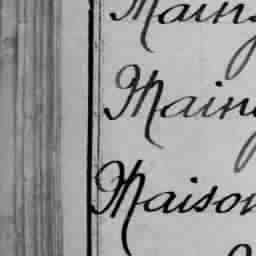 Maing
Maing
Maison